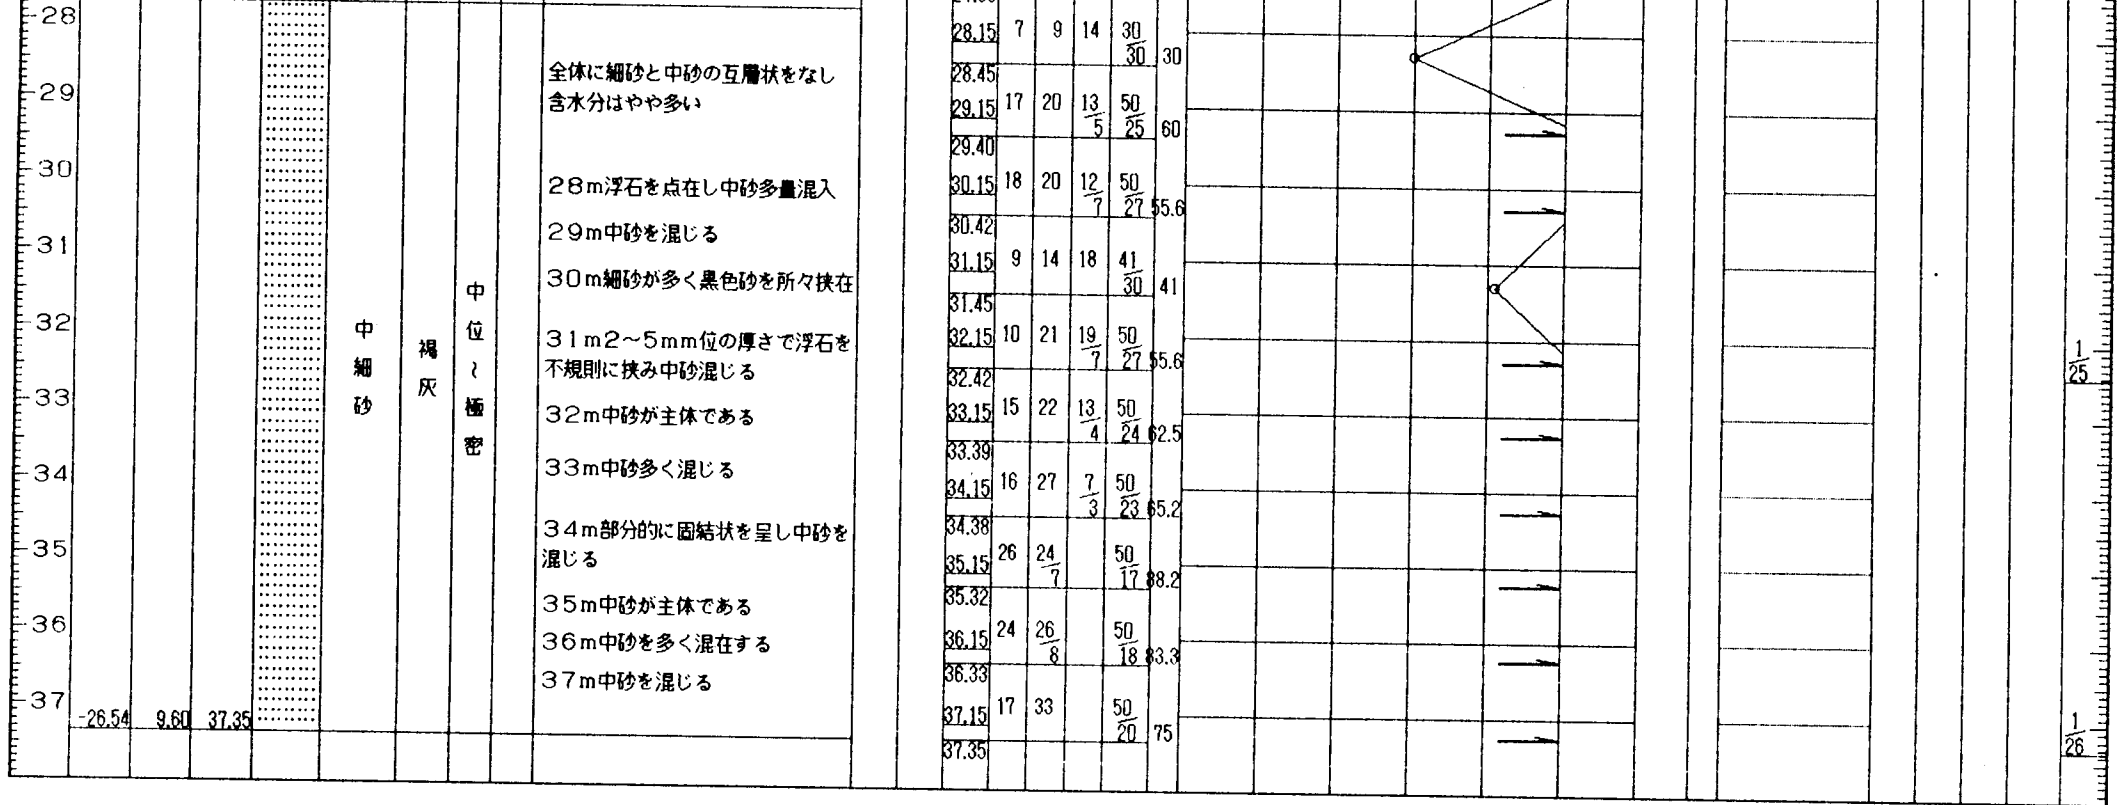 28
29
30
31
32
33
34
35
36
37
-26.54 9.60 37.35
中細砂
褐灰
中位～極密
全体に細砂と中砂の互層状をなし
含水分はやや多い
28m浮石を点在し中砂多量混入
29m中砂を混じる
30m細砂が多く黒色砂を所々挟在
31m2～5mm位の厚さで浮石を
不規則に挟み中砂混じる
32m中砂が主体である
33m中砂多く混じる
34m部分的に固結状を呈し中砂を
混じる
35m中砂が主体である
36m中砂を多く混在する
37m中砂を混じる
28.15 7 9 14 30/30 30
28.45
29.15 17 20 13/5 50/25 60
29.40
30.15 18 20 12/7 50/27 55.6
30.42
31.15 9 14 18 41/30 41
31.45
32.15 10 21 19/7 50/27 55.6
32.42
33.15 15 22 13/4 50/24 62.5
33.39
34.15 16 27 7/3 50/23 65.2
34.38
35.15 26 24/7 50/17 88.2
35.32
36.15 24 26/8 50/18 83.3
36.33
37.15 17 33 50/20 75
37.35
1/25
1/26